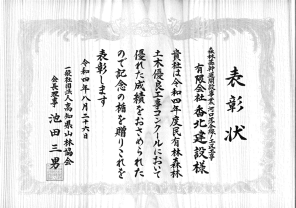 表彰状
有限会社香北建設様
貴社は令和四年度民有林森林
土木優良工事コンクールにおいて
優れた成績をおさめられた
ので記念の楯を贈りこれを
表彰します
令和四年八月二十六日
一般社団法人高知県山林協会
会長理事 池田三男